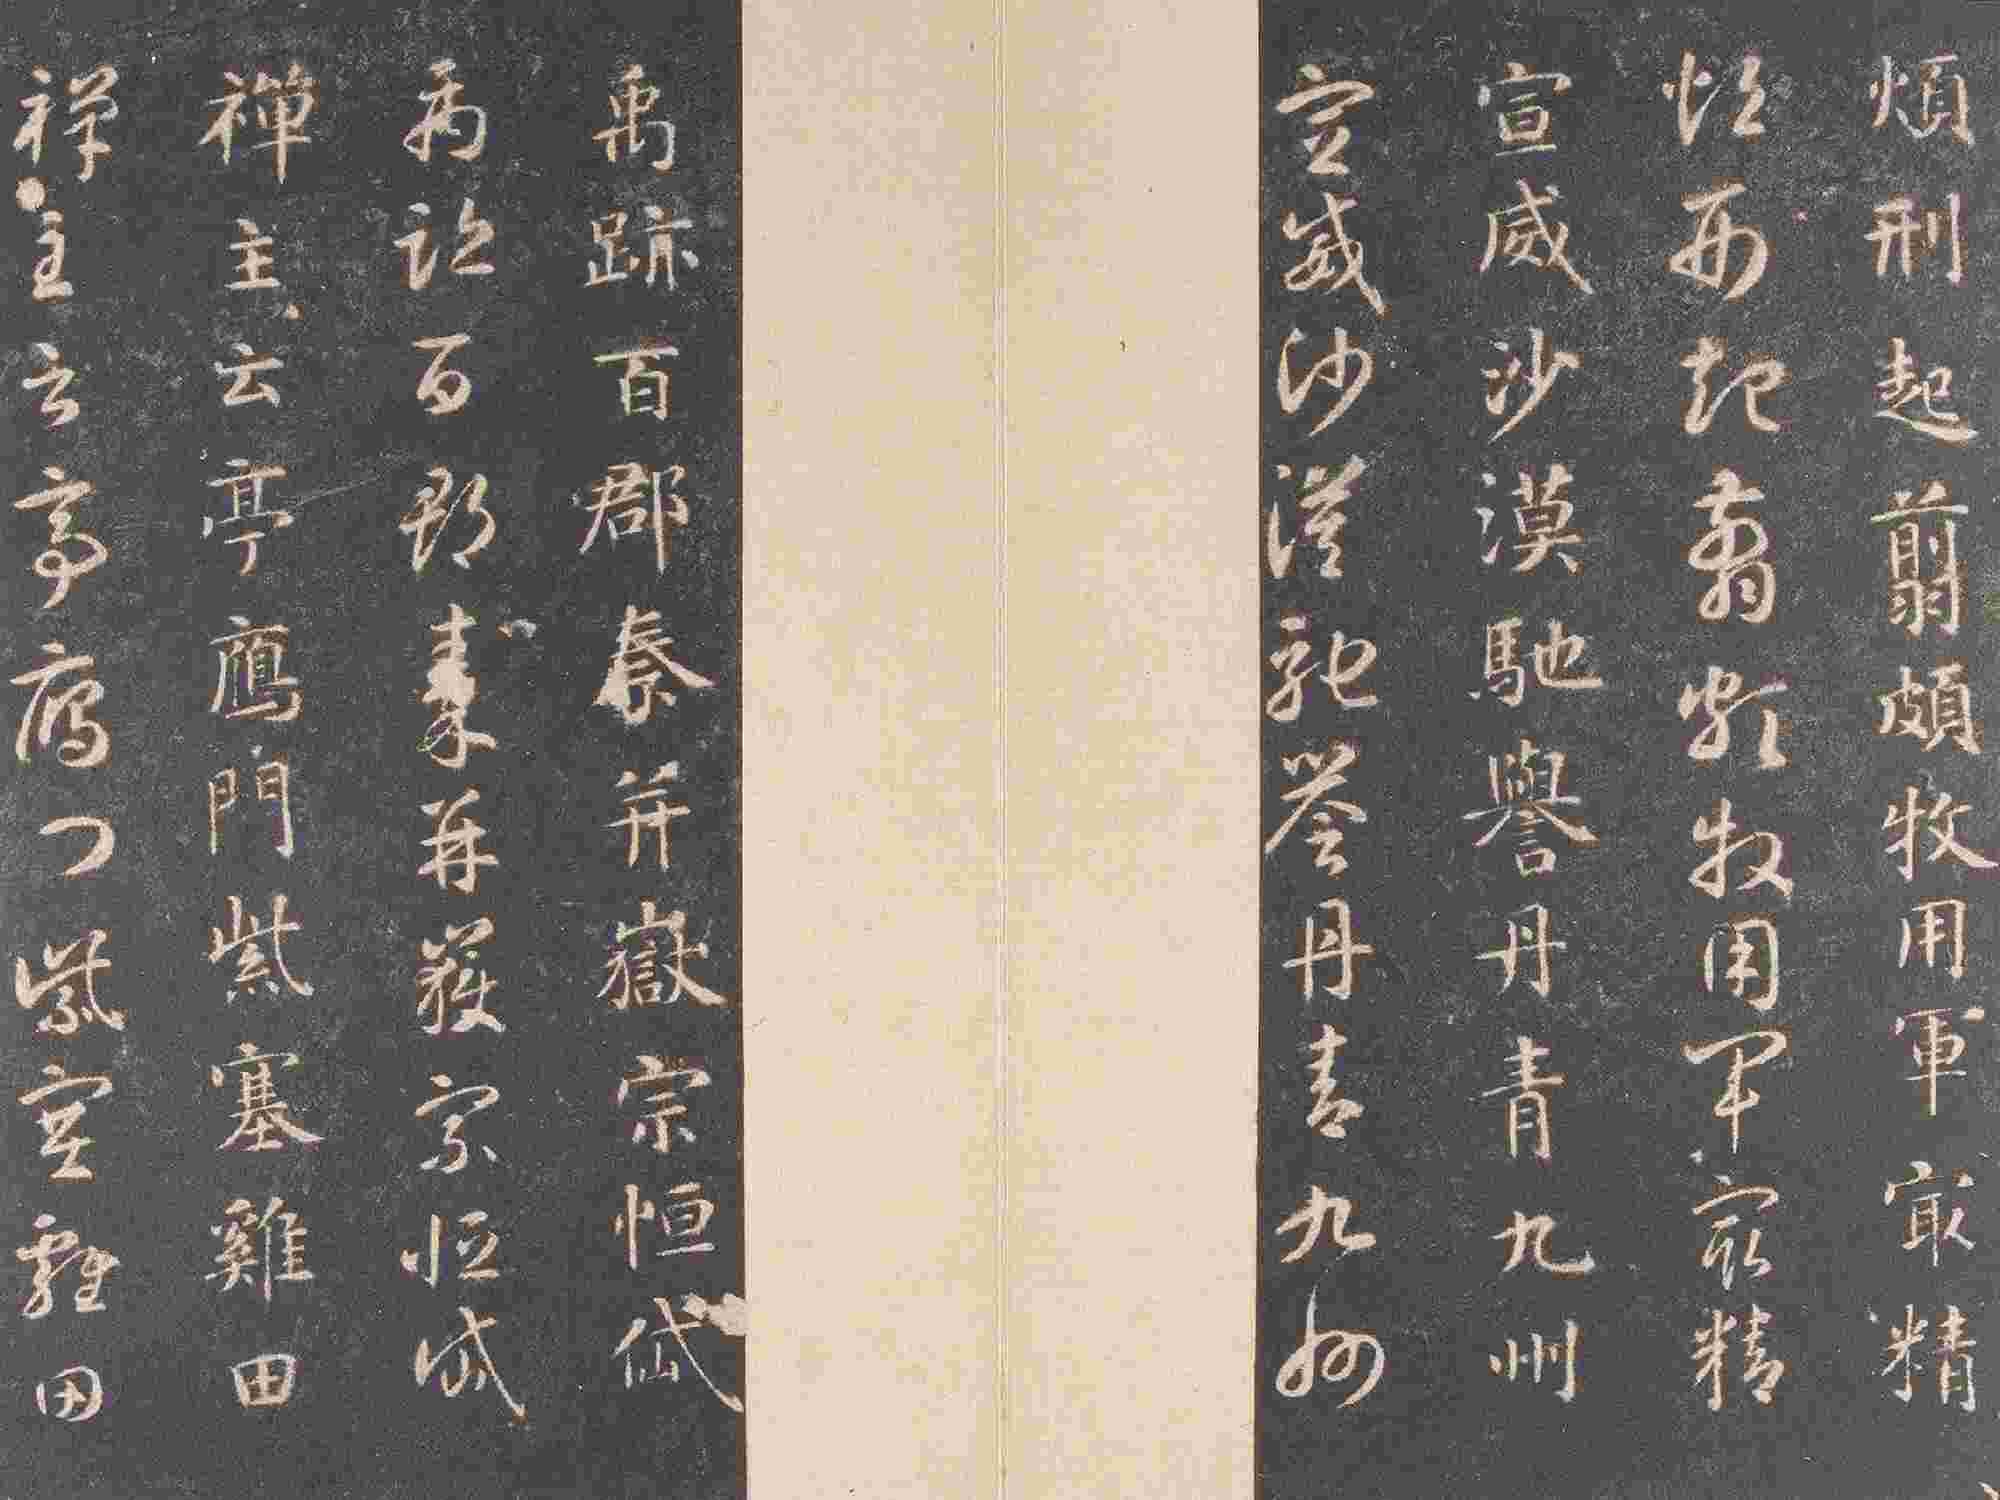 煩刑起翦頗牧用軍㝡精
煩刑起翦頗牧用軍㝡精
宣威沙漠馳譽丹青九州
宣威沙漠馳譽丹青九州
禹跡百郡秦并嶽宗恒岱
禹跡百郡秦并嶽宗恒岱
禪主云亭鴈門紫塞雞田
禪主云亭鴈門紫塞雞田